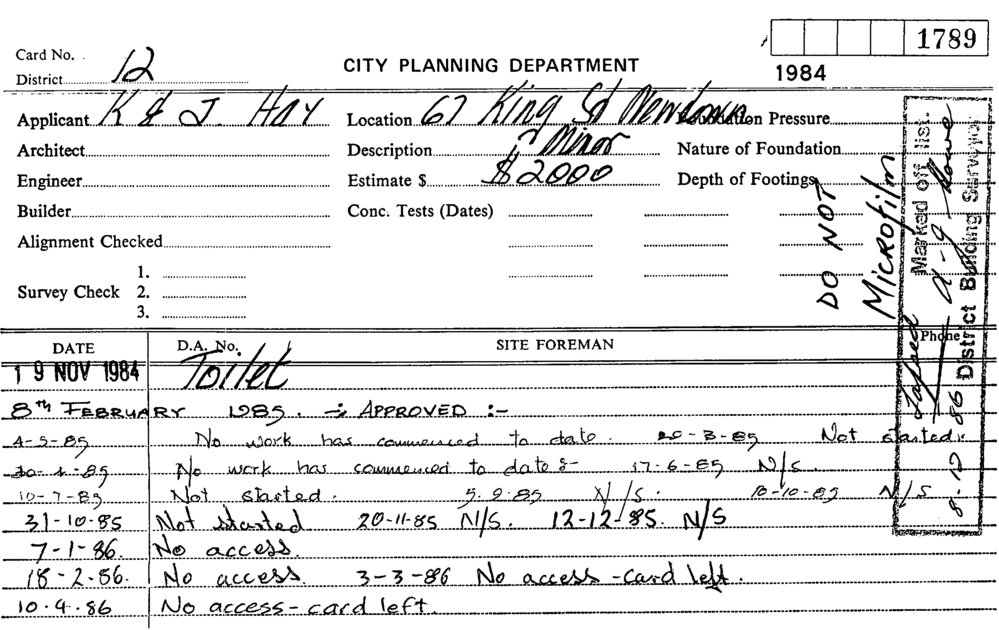 1789
Card No.
District 12
CITY PLANNING DEPARTMENT
1984
Applicant K & J. HAY Location 67 King St Newtown Foundation Pressure
Architect Description Minor Nature of Foundation
Engineer Estimate $ $2000 Depth of Footings
Builder Conc. Tests (Dates)
Alignment Checked
1.
Survey Check 2.
3.
DO NOT
MICROFILM
Marked off list.
Lapsed
8-12-86 District Building Surveyor
DATE D.A. No. SITE FOREMAN Phone
19 NOV 1984 Toilet
8TH FEBRUARY 1985. -:- APPROVED :-
4-3-85 No work has commenced to date. 3-85 Not started
85 No work has commenced to date :- 17-6-85 N/S.
10-7-85 Not started. 5.9.85 N/S. 10-10-85 N/S
31-10-85 Not started 20-11-85 N/S. 12-12-85. N/S
7-1-86. No access.
18-2-86. No access. 3-3-86 No access - card left.
10.4.86 No access - card left.